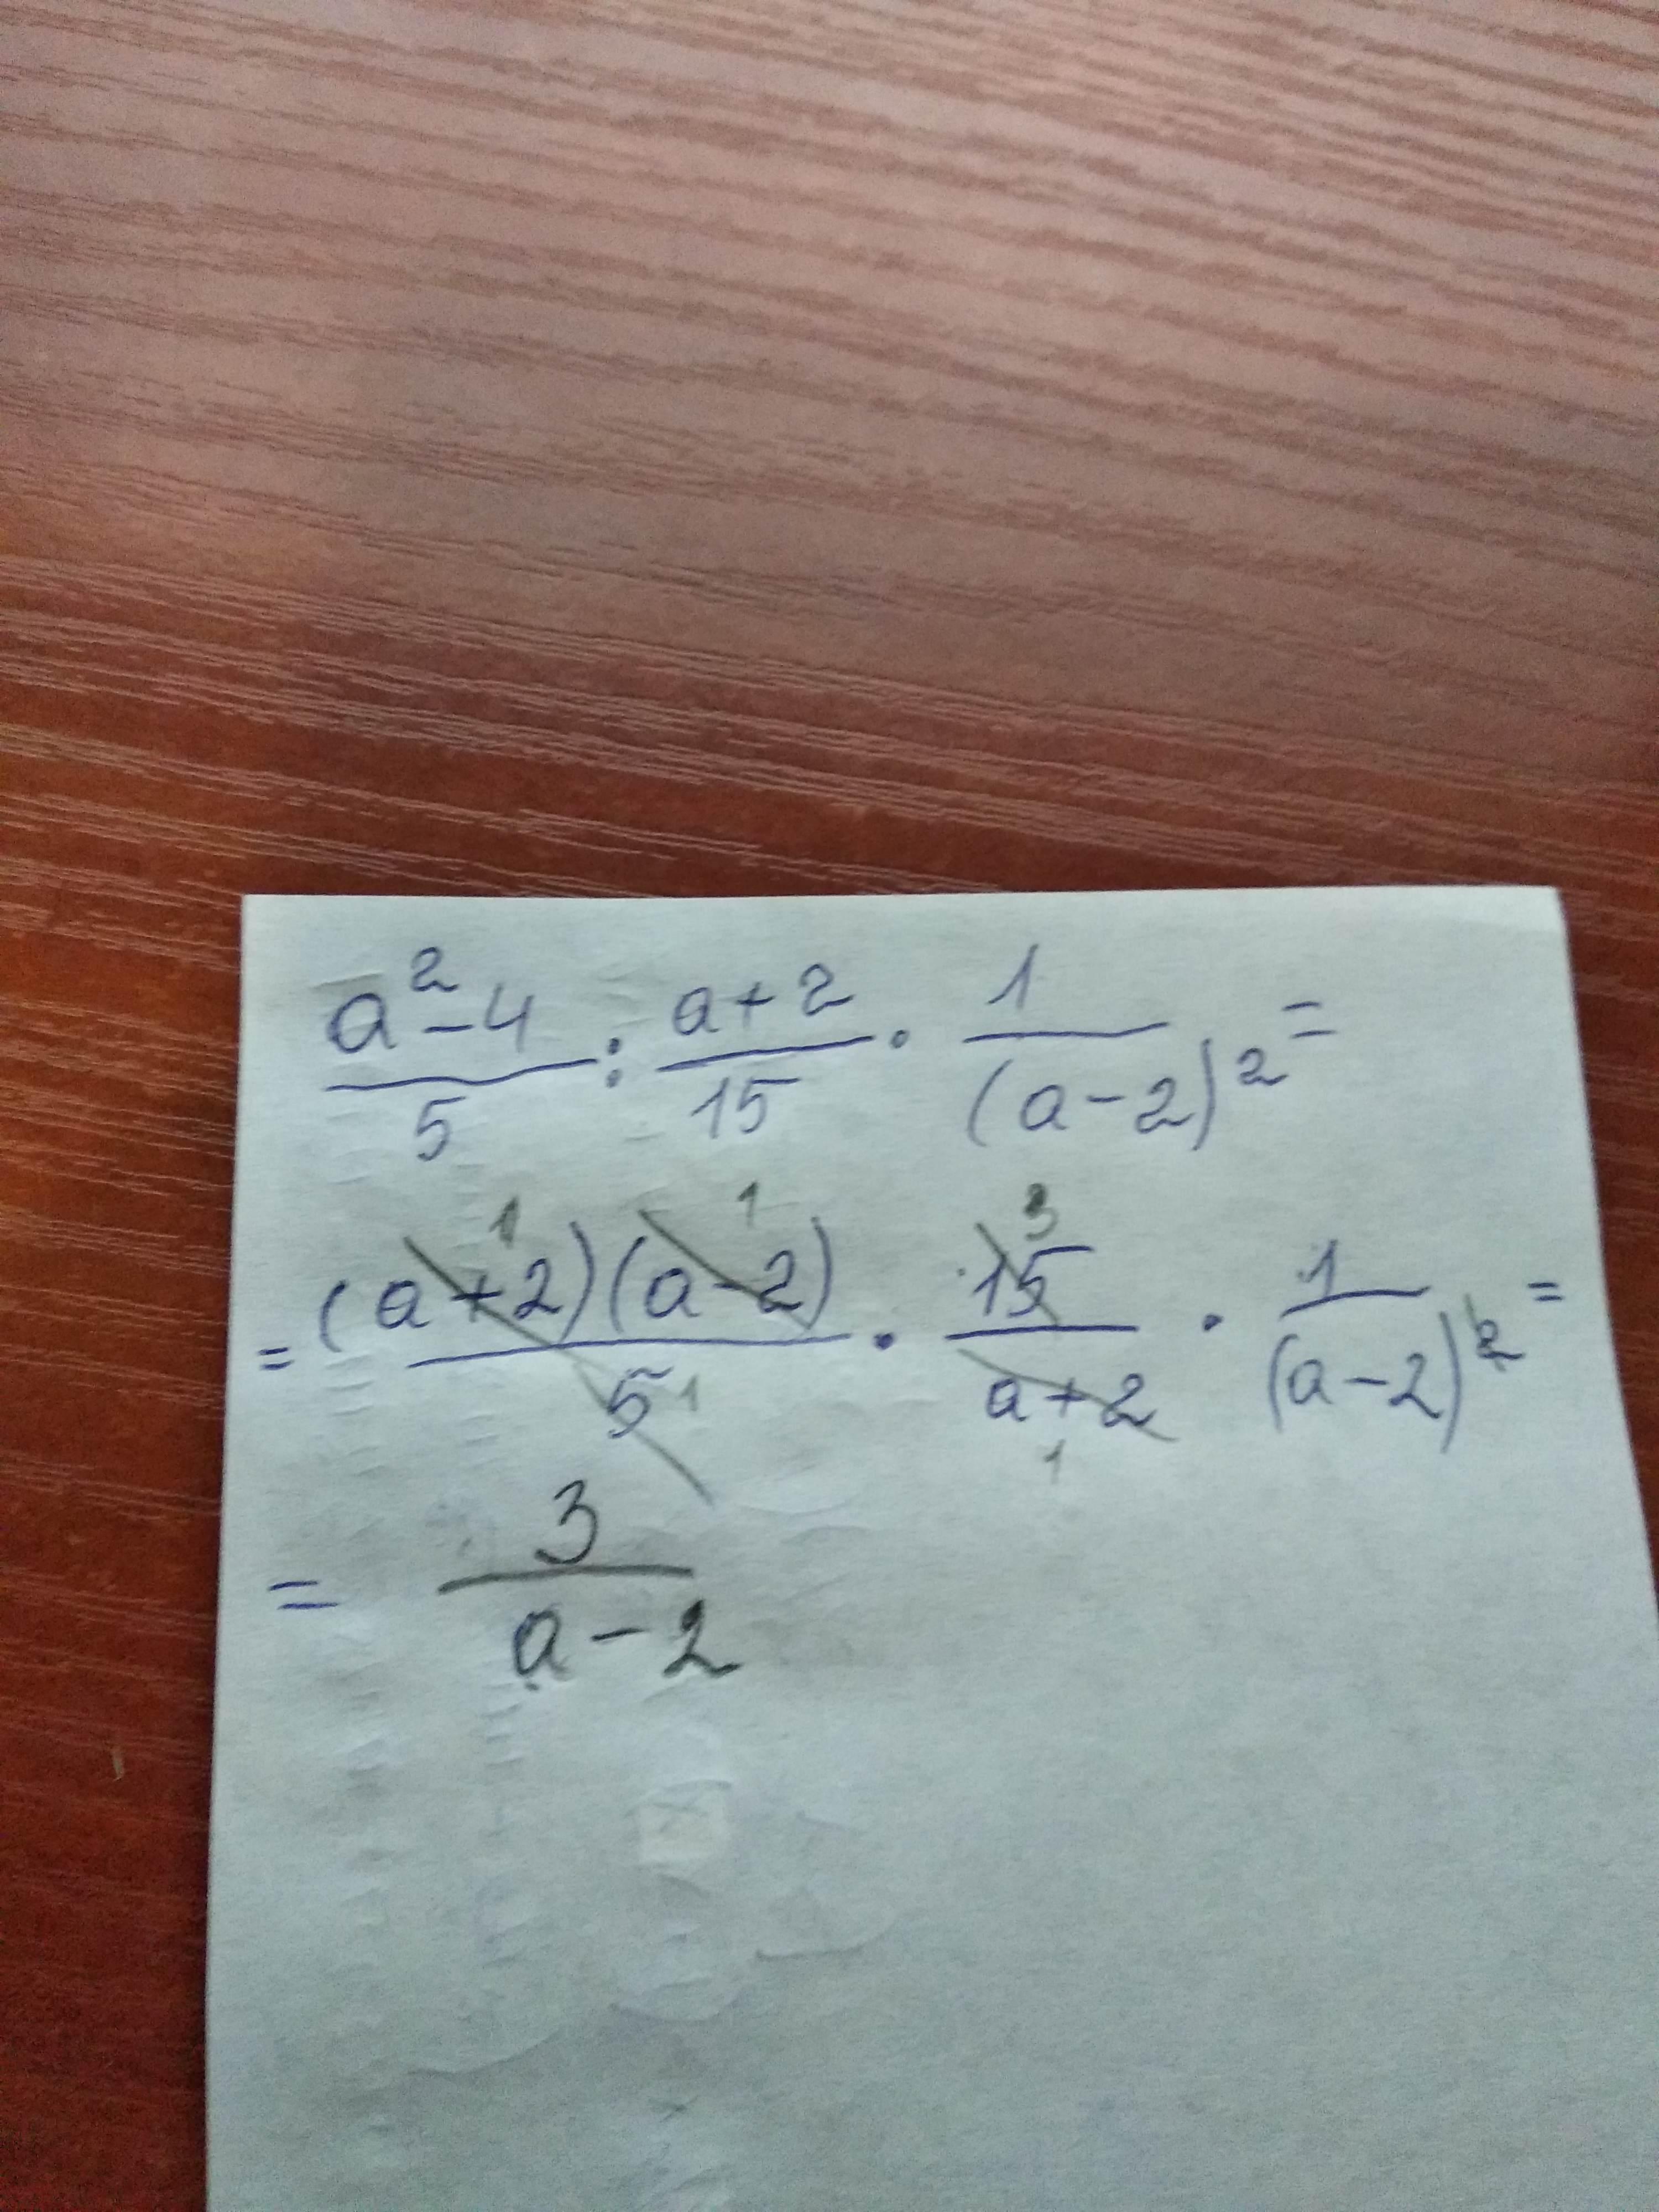 a²-4/5 : a+2/15 · 1/(a-2)² =
= (a+2)(a-2)/5 · 15/a+2 · 1/(a-2)² =
= 3/a-2